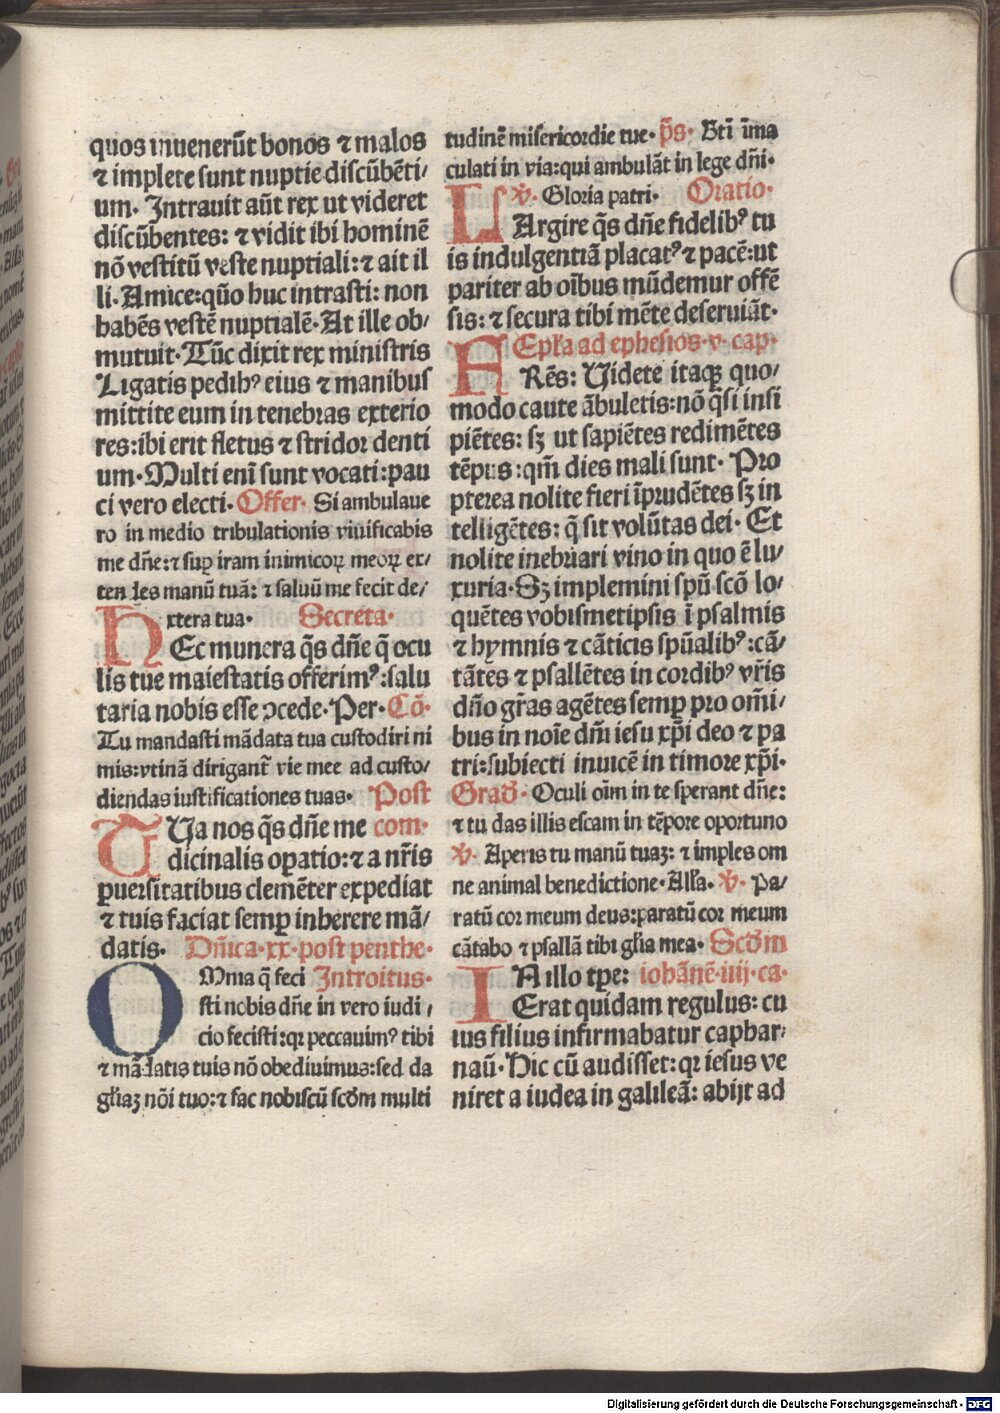 quos inuenerūt bonos ⁊ malos
⁊ implete sunt nuptie discūbēti/
um. Intrauit aūt rex ut videret
discūbentes: ⁊ vidit ibi hominē
nō vestitū veste nuptiali: ⁊ ait il
li. Amice: quō huc intrasti: non
habēs vestē nuptialē. At ille ob/
mutuit. Tūc dixit rex ministris
Ligatis pedibꝰ eius ⁊ manibus
mittite eum in tenebras exterio
res: ibi erit fletus ⁊ stridor denti
um. Multi enī sunt vocati: pau
ci vero electi. Offer. Si ambulaue
ro in medio tribulationis viuificabis
me dn̄e: ⁊ suꝑ iram inimicoꝝ meoꝝ ex/
ten des manū tuā: ⁊ saluū me fecit de/
xtera tua. Secreta.
HEc munera q̄s dn̄e q̄ ocu
lis tue maiestatis offerimꝰ: salu
taria nobis esse ꝯcede. Per. Cō.
Tu mandasti mādata tua custodiri ni
mis: vtinā dirigant̄ vie mee ad custo/
diendas iustificationes tuas. Post
TUa nos q̄s dn̄e me com.
dicinalis oꝑatio: ⁊ a nr̄is
ꝑuersitatibus clemēter expediat
⁊ tuis faciat semꝑ inherere mā/
datis. Dn̄ica. xx. post penthe.
OMnia q̄ feci Introitus.
sti nobis dn̄e in vero iudi/
cio fecisti: qꝛ peccauimꝰ tibi
⁊ mādatis tuis nō obediuimus: sed da
gl̄iaꝫ nōi tuo: ⁊ fac nobiscū scd̄m multi
tudinē misericordie tue. p̄s. Bti īma
culati in via: qui ambulāt in lege dn̄i.
℣. Gloria patri. Oratio.
LArgire q̄s dn̄e fidelibꝰ tu
is indulgentiā placatꝰ ⁊ pacē: ut
pariter ab oībus mūdemur offē
sis: ⁊ secura tibi mēte deseruiāt.
Ep̄la ad ephesios. v. cap.
FRēs: Uidete itaqꝫ quo/
modo caute ābuletis: nō q̄si insi
piētes: sꝫ ut sapiētes redimētes
tēpus: qm̄ dies mali sunt. Pro
pterea nolite fieri īprudētes sꝫ in
telligētes: q̄ sit volūtas dei. Et
nolite inebriari vino in quo ē lu/
xuria. Sꝫ implemini spū scō lo/
quētes vobismetipsis ī psalmis
⁊ hymnis ⁊ cāticis spūalibꝰ: cā/
tātes ⁊ psallētes in cordibꝰ vr̄is
dn̄o gr̄as agētes semꝑ pro om̄i/
bus in noīe dn̄i iesu xp̄i deo ⁊ pa
tri: subiecti inuicē in timore xp̄i.
Grad̄. Oculi oīm in te sperant dn̄e:
⁊ tu das illis escam in tēpore oportuno
℣. Aperis tu manū tuaꝫ: ⁊ imples om
ne animal benedictione. All̄a. ℣. Pa/
ratū cor meum deus: paratū cor meum
cātabo ⁊ psallā tibi gl̄ia mea. Scd̄m
IN illo tꝑe: iohānē. iiij. ca.
Erat quidam regulus: cu
ius filius infirmabatur caphar/
naū. Hic cū audisset: qꝛ iesus ve
niret a iudea in galileā: abijt ad
Digitalisierung gefördert durch die Deutsche Forschungsgemeinschaft - DFG